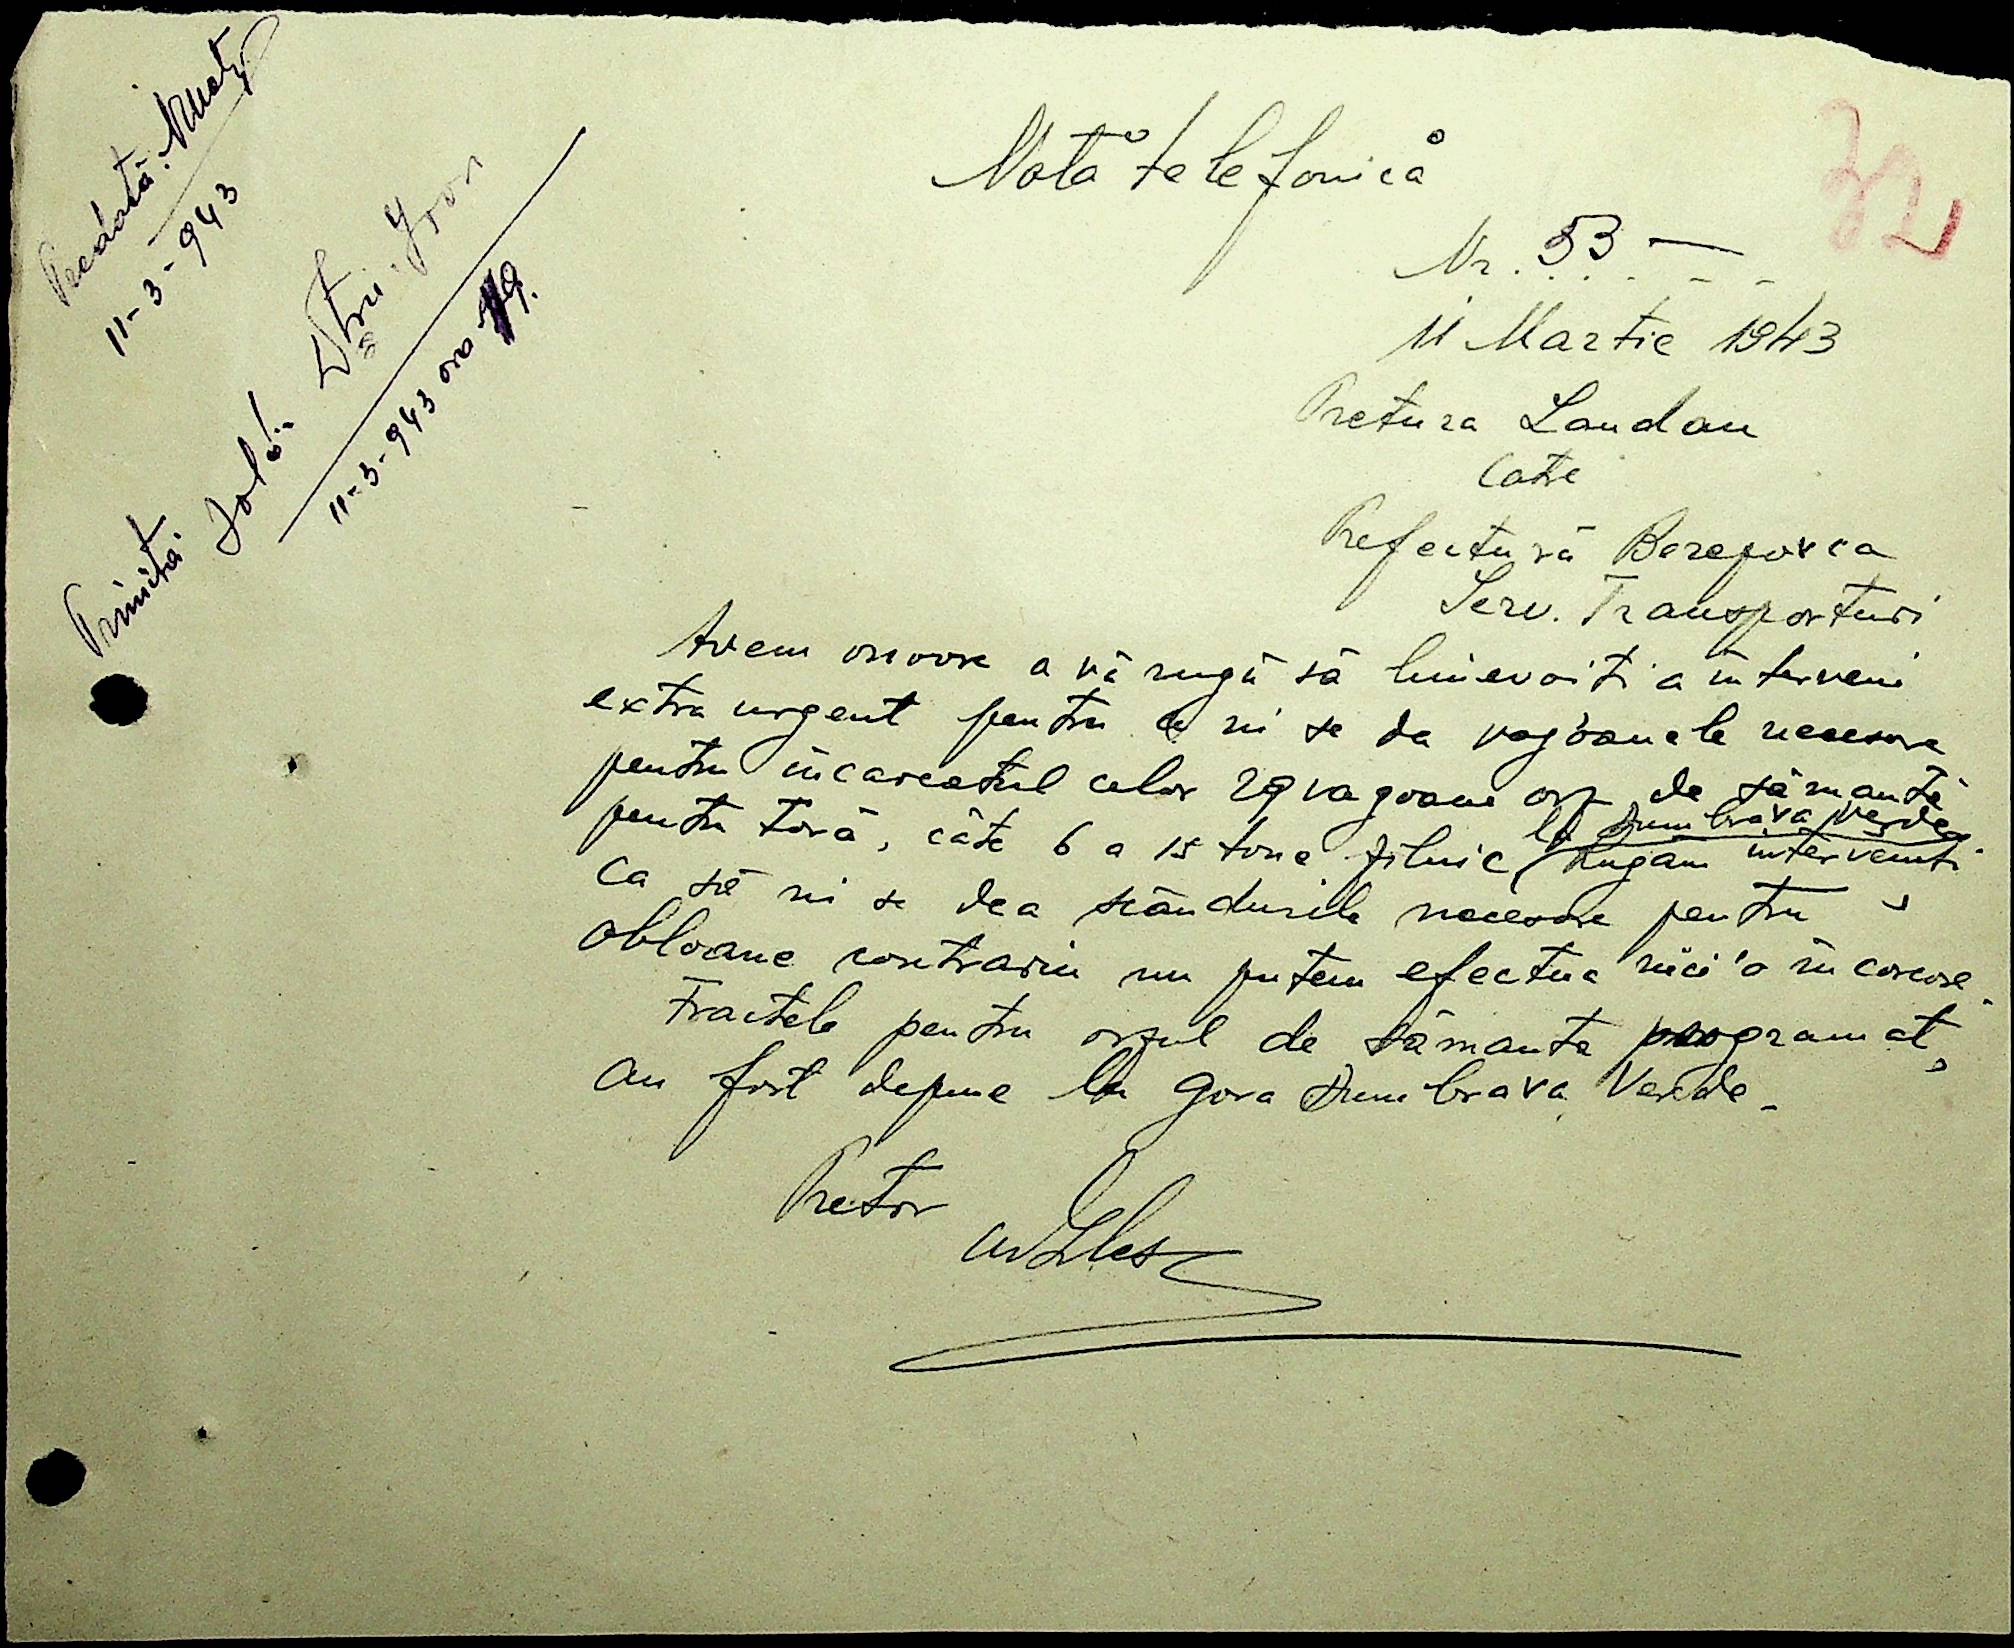 Predată:
11-3-943
Primită: Sold.
11-3-943 ora 19.
Notă telefonică
32
Nr. 53 —
11 Martie 1943
Pretura Landau
Catre
Prefectură Berezovca
Serv. Transporturi
Avem onoore a vă rugă să binevoiti a interveni
extra urgent pentru a ni se da vagoanele necesare
pentru încarcatul celor 29 vagoane orz de sămantă
la Dumbrava Verde
pentru tară, câte 6 a 15 tone zilnic, Rugăm interveniti
ca să ni se dea scândurile necesare pentru
obloane contrariu nu putem efectua nici'o incarcare.
Fractele pentru orzul de sămanta programat,
au fost depuse la Gara Dumbrava Verde.
Pretor